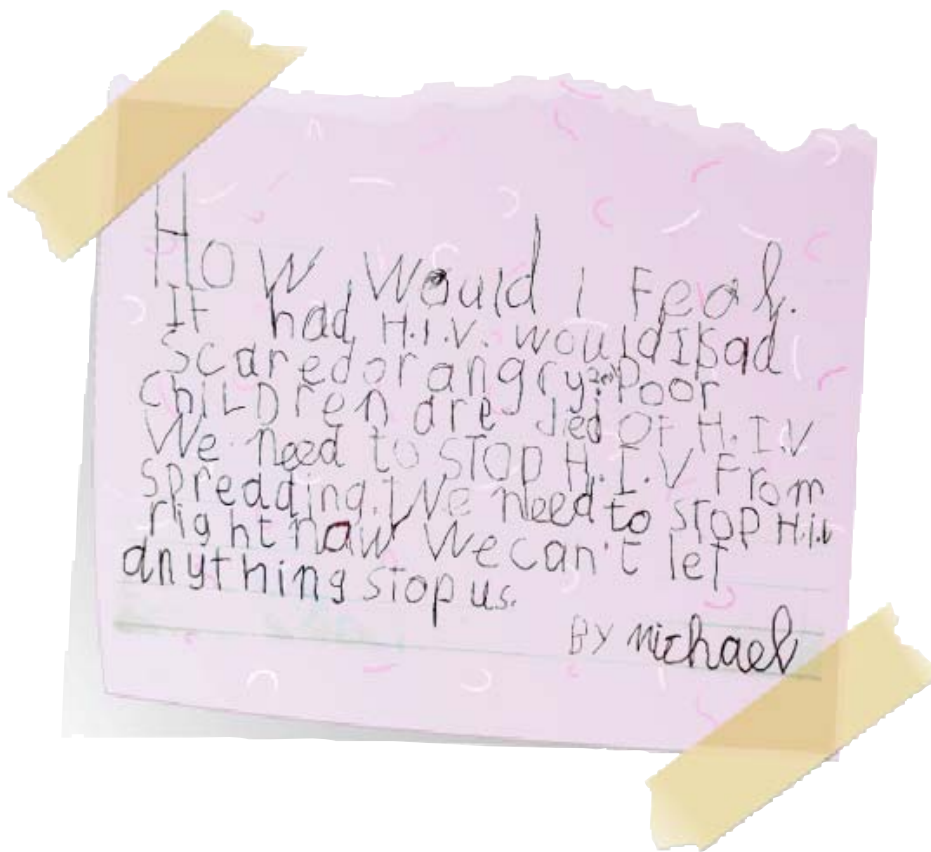 How would i Feol.
IF had H.I.V. would I sad
Scared or angry? Poor
CHiLDren are died OF H.I.V
We need to STOP H.I.V From
spredding. We need to stop H.i.v
right naw We can't let
anything stop us.
BY michael